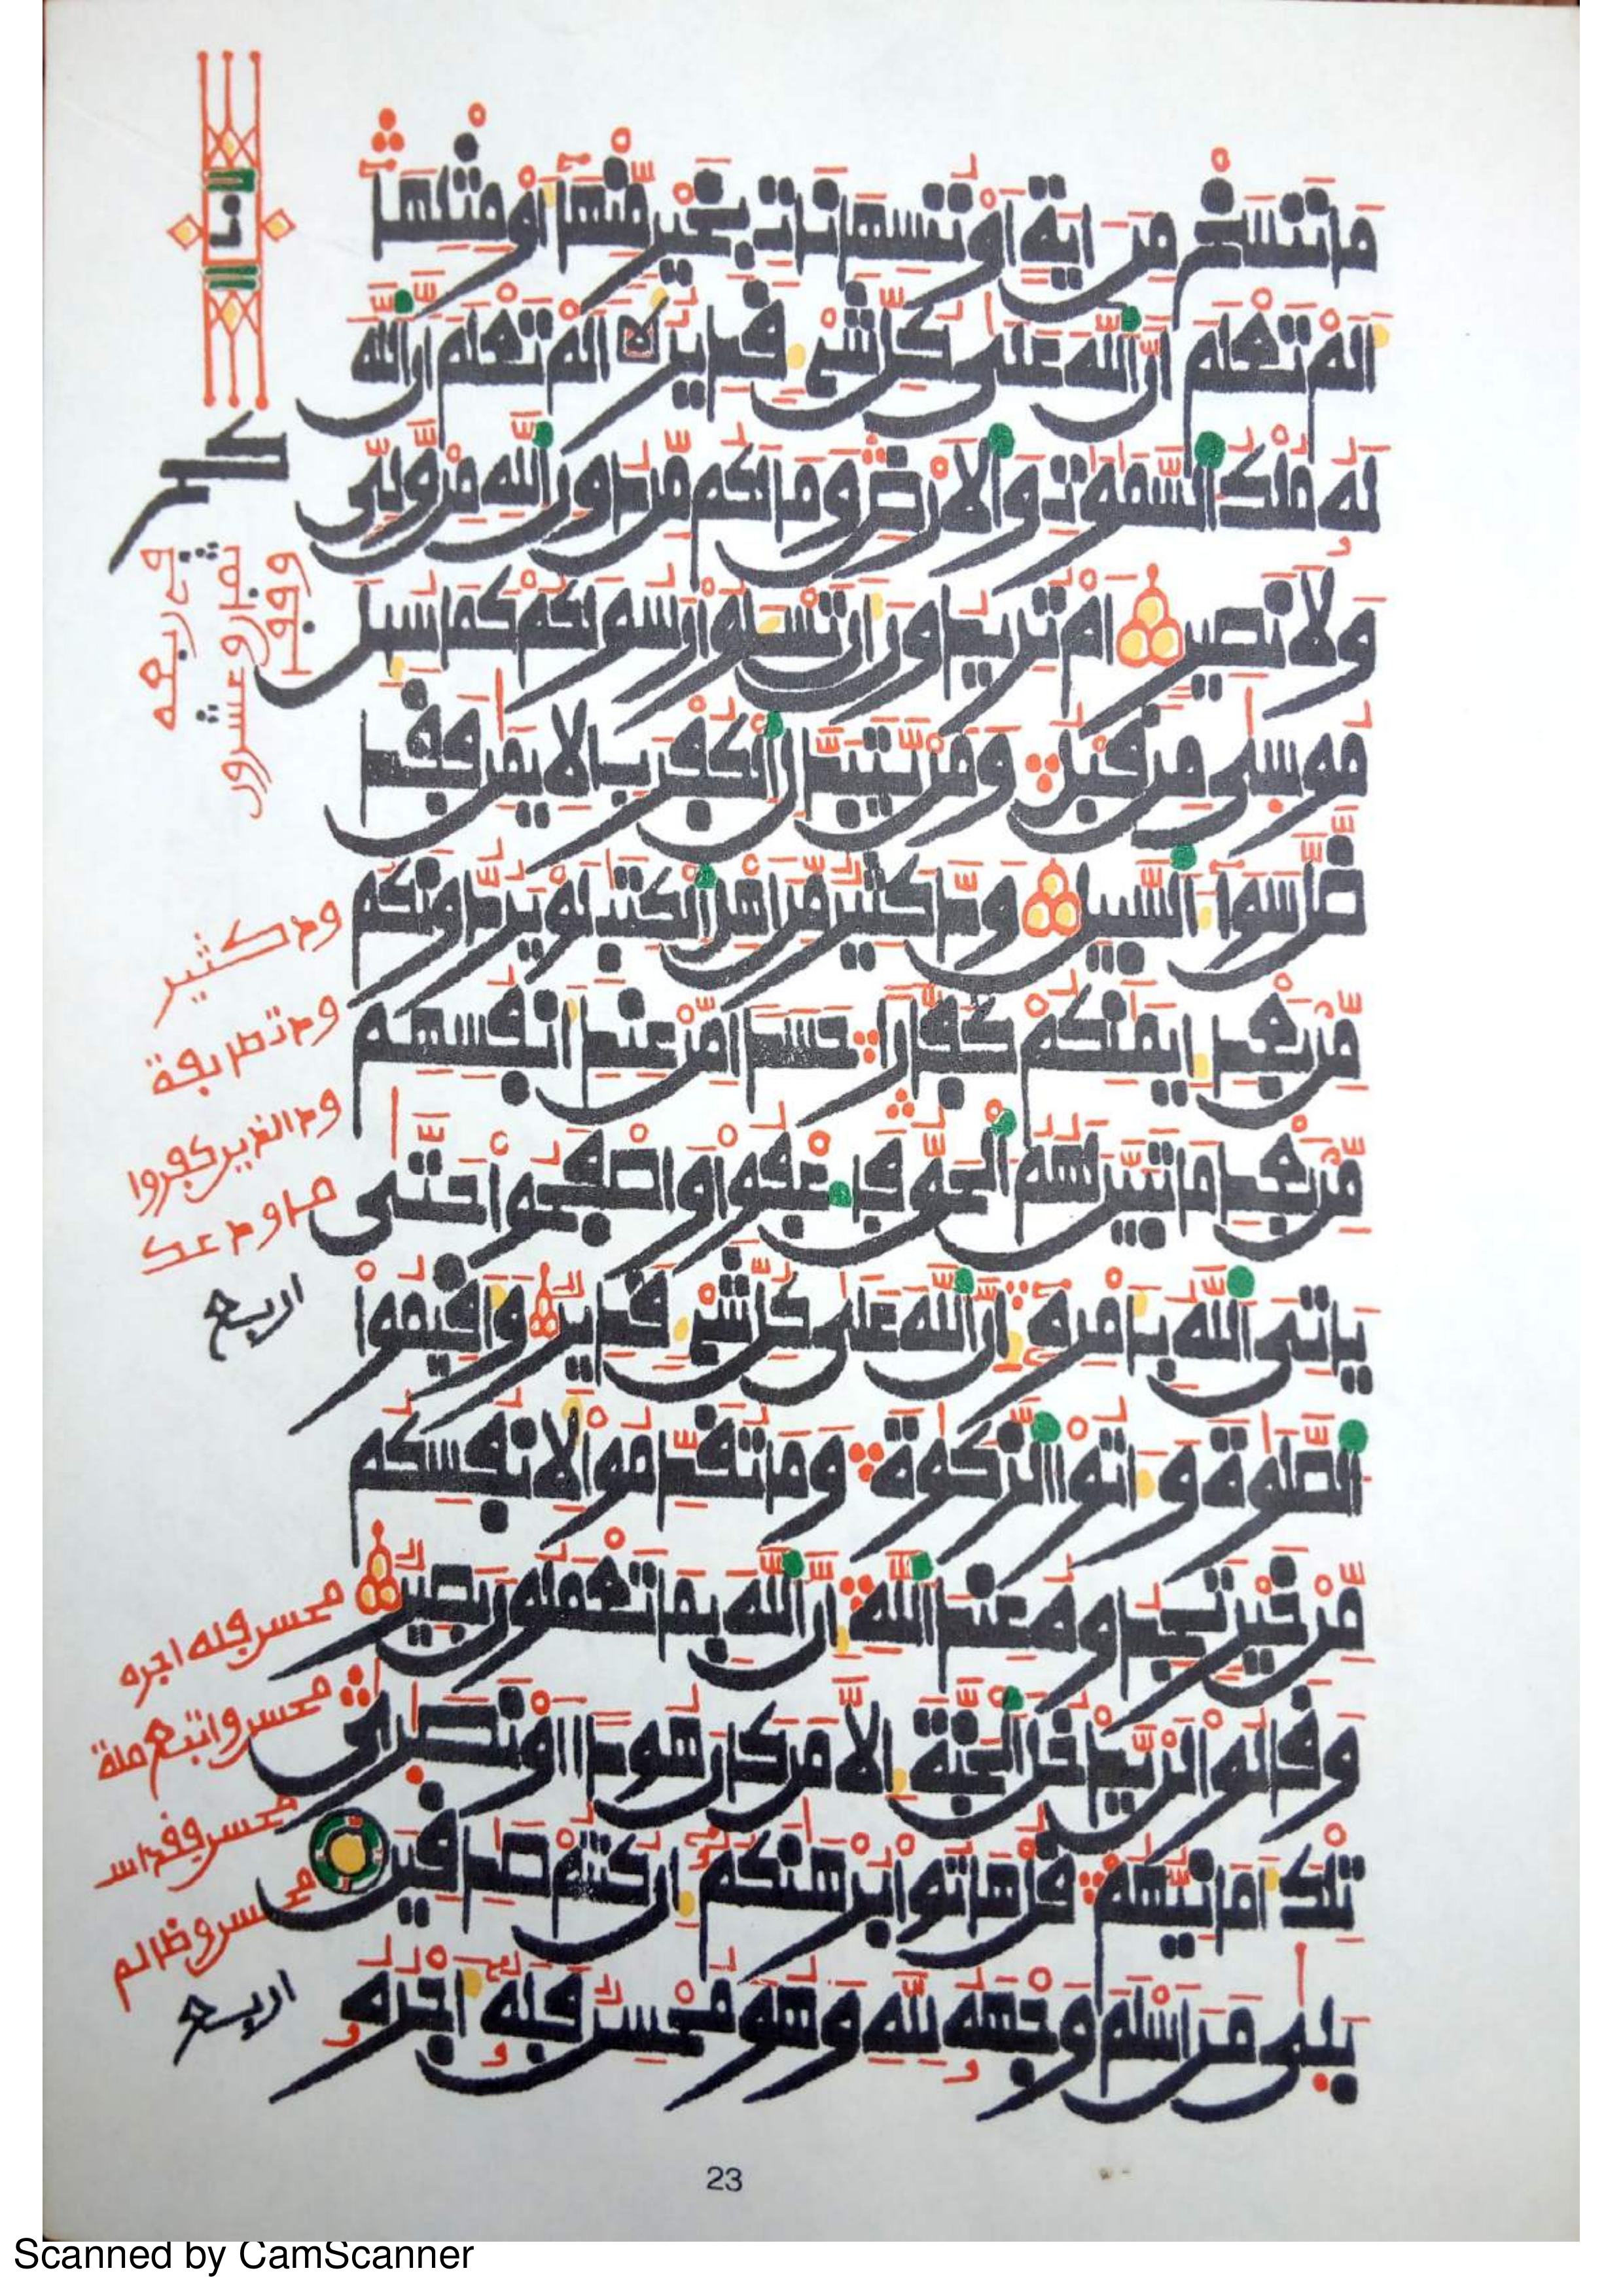 مَا نَنسَخْ مِنَ ايَةٍ اَوْ نُنسِهَا نَاتِ بِخَيْرٍ مِّنْهَا أَوْ مِثْلِهَا
أَلَمْ تَعْلَمَ اَنَّ اَللَّهَ عَلَىٰ كُلِّ شَيْءٍ قَدِيرٌ اَلَمْ تَعْلَمَ اَنَّ اَللَّهَ
لَهُ مُلْكُ اُلسَّمَٰوَٰتِ وَالَارْضِ وَمَا لَكُم مِّن دُونِ اِللَّهِ مِنْ وَّلِيٍّ
وَلَا نَصِيرٍ اَمْ تُرِيدُونَ أَن تَسْـَٔلُوا رَسُولَكُمْ كَمَا سُئِلَ
مُوسَىٰ مِن قَبْلُ وَمَنْ يَّتَبَدَّلِ اِلْكُفْرَ بِالِايمَٰنِ فَقَد
ضَّلَّ سَوَآءَ اَلسَّبِيلِ وَدَّ كَثِيرٌ مِّنَ اَهْلِ اِلْكِتَٰبِ لَوْ يَرُدُّونَكُم
مِّنۢ بَعْدِ إِيمَٰنِكُمْ كُفَّارًا حَسَدًا مِّنْ عِندِ أَنفُسِهِم
مِّنۢ بَعْدِ مَا تَبَيَّنَ لَهُمُ اُلْحَقُّ فَاعْفُوا وَاصْفَحُوا حَتَّىٰ
يَاتِيَ اَللَّهُ بِأَمْرِهِ إِنَّ اَللَّهَ عَلَىٰ كُلِّ شَيْءٍ قَدِيرٌ وَأَقِيمُوا
اُلصَّلَوٰةَ وَءَاتُوا اُلزَّكَوٰةَ وَمَا تُقَدِّمُوا لِأَنفُسِكُم
مِّنْ خَيْرٍ تَجِدُوهُ عِندَ اَللَّهِ إِنَّ اَللَّهَ بِمَا تَعْمَلُونَ بَصِيرٌ
وَقَالُوا لَنْ يَّدْخُلَ اَلْجَنَّةَ إِلَّا مَن كَانَ هُودًا اَوْ نَصَٰرَىٰ
تِلْكَ أَمَانِيُّهُمْ قُلْ هَاتُوا بُرْهَٰنَكُمُ إِن كُنتُمْ صَٰدِقِينَ
بَلَىٰ مَنَ اَسْلَمَ وَجْهَهُ لِلَّهِ وَهُوَ مُحْسِنٌ فَلَهُ أَجْرُهُ
ود كثير
ود تطايفة
ود الذين كفروا
ما ودعك
اربع
محسن فله اجره
محسن واتبع ملة
محسن فقد اس
محسن وظالم
اربع
23
Scanned by CamScanner